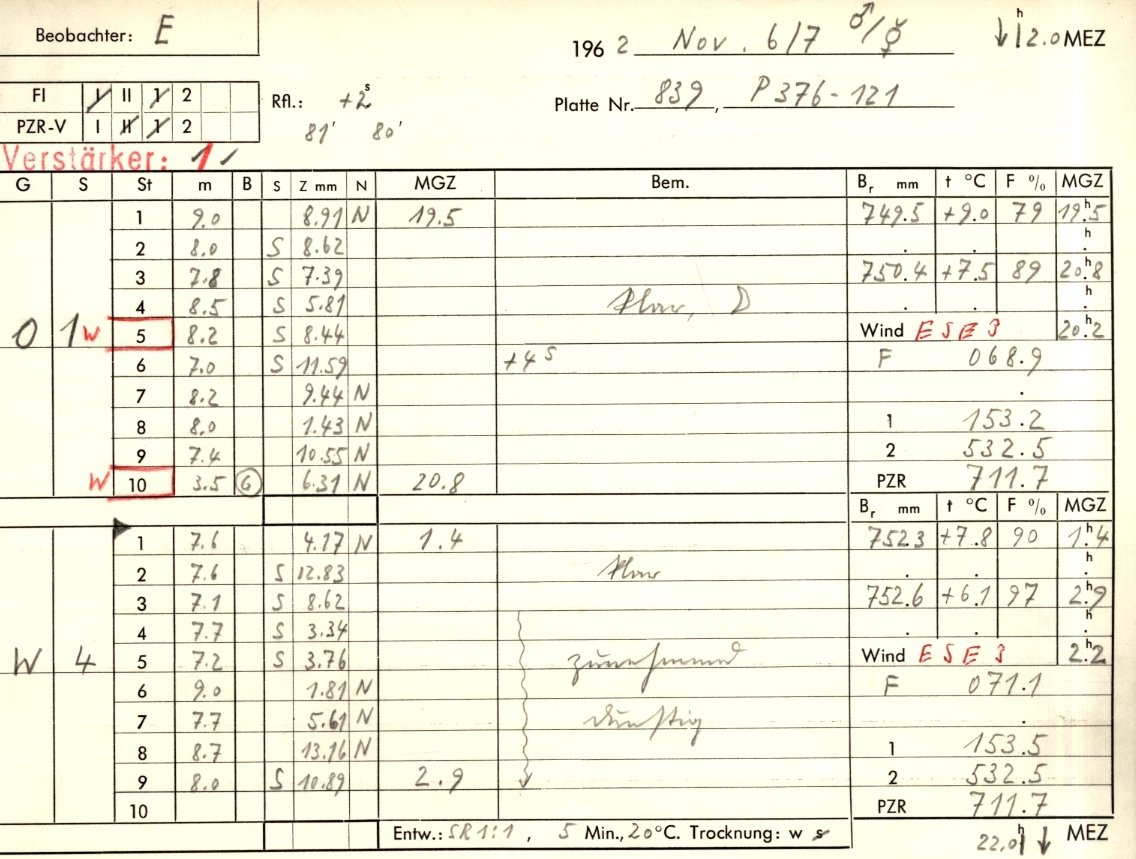 Beobachter: E
196 2 Nov. 6/7 ♂/☿ ↓ 12.0ʰ MEZ
FI I II 1 2
PZR-V I II 1 2
Rfl.: +2ˢ
81' 80'
Platte Nr. 839, P376-121
Verstärker: 1 ✓
G S St m B S Z mm N MGZ Bem. Br mm t °C F % MGZ
1 9.0 8.91 N 19.5 749.5 +9.0 79 19ʰ.5
2 8.0 S 8.62 . . ʰ.
3 7.8 S 7.39 750.4 +7.5 89 20ʰ.8
4 8.5 S 5.81 klar, D . . ʰ.
O 1 W 5 8.2 S 8.44 Wind ESE 3 20ʰ.2
6 7.0 S 11.59 +4ˢ F 068.9
7 8.2 9.44 N .
8 8.0 1.43 N 1 153.2
9 7.4 10.55 N 2 532.5
W 10 3.5 G 6.31 N 20.8 PZR 711.7
Br mm t °C F % MGZ
1 7.6 4.17 N 1.4 7523 +7.8 90 1ʰ.4
2 7.6 S 12.83 klar . . ʰ.
3 7.1 S 8.62 752.6 +6.1 97 2ʰ.9
4 7.7 S 3.34 . . ʰ.
W 4 5 7.2 S 3.76 zunehmend Wind ESE 3 2ʰ.2
6 9.0 1.81 N F 071.1
7 7.7 5.61 N dunstig .
8 8.7 13.16 N 1 153.5
9 8.0 S 10.89 2.9 2 532.5
10 PZR 711.7
Entw.: SR 1:1, 5 Min., 20°C. Trocknung: w s
22.0ʰ ↓ MEZ